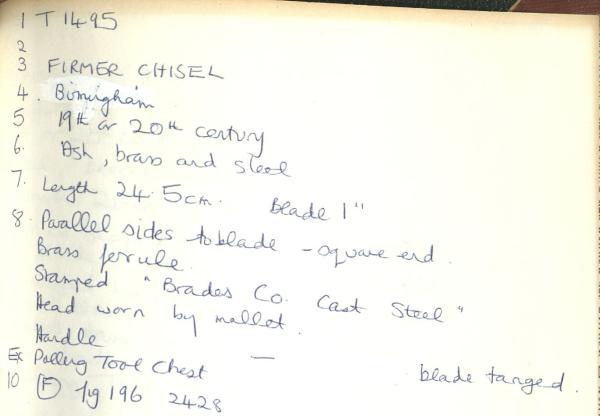 1 T 1495
2
3 FIRMER CHISEL
4. Birmigham
5 19th or 20th century
6. Ash, brass and steel
7. Length 24.5cm. Blade 1"
8. Parallel sides to blade - square end.
Brass ferule.
Stamped "Brades Co. Cast Steel"
Head worn by mallet.
Handle — blade tanged.
Ex Tool Chest
10 (F) fig 196 2428